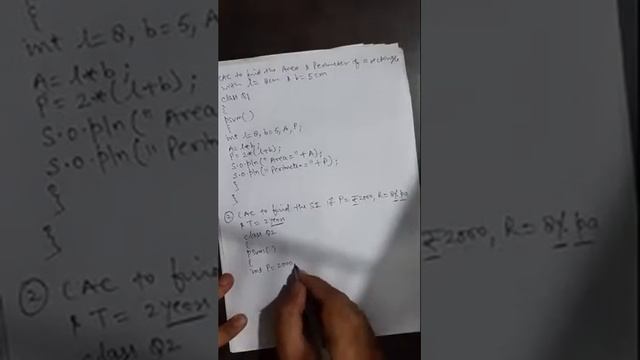 CAC to find the Area & Perimeter of a rectangle
with l = 8cm & b = 5cm
class Q1
{
psvm()
{
int l=8, b=5, A, P;
A=l*b;
P=2*(l+b);
S.O.pln("Area="+A);
S.O.pln("Perimeter="+P);
}
}
② CAC to find the SI if P=₹2000, R=8% pa
& T=2years
class Q2
{
psvm()
{
int P=2000,